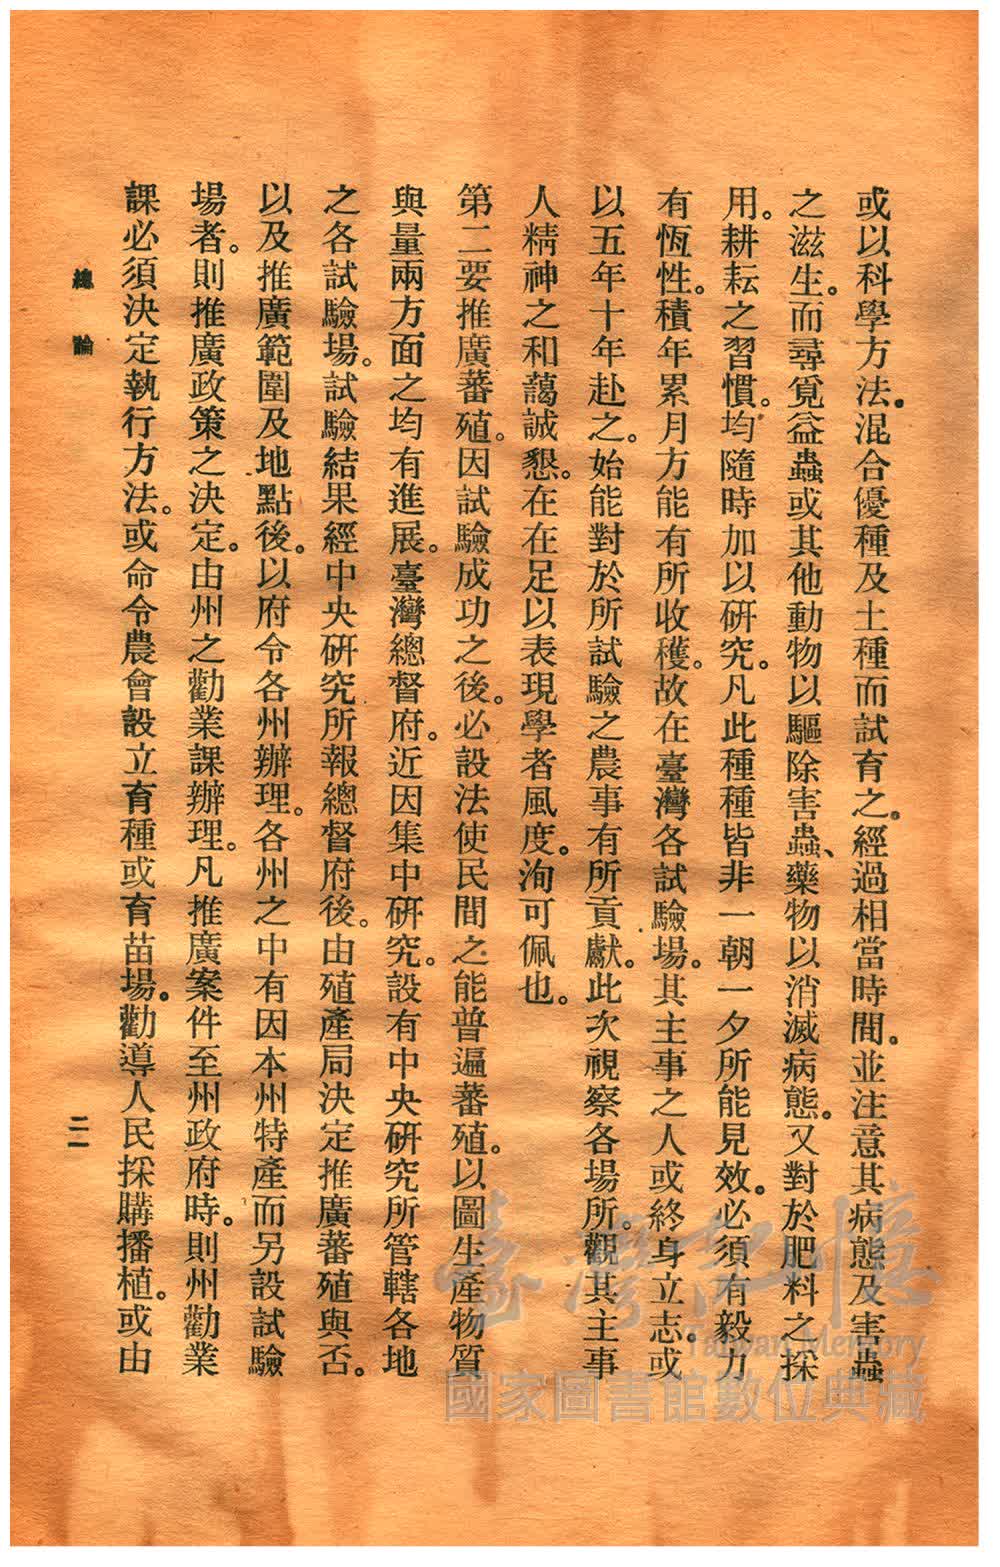 或以科學方法。混合優種及土種而試育之。經過相當時間。並注意其病態及害蟲
之滋生。而尋覓益蟲或其他動物以驅除害蟲、藥物以消滅病態。又對於肥料之採
用。耕耘之習慣。均隨時加以研究。凡此種種皆非一朝一夕所能見效。必須有毅力
有恆性。積年累月方能有所收穫。故在臺灣各試驗場。其主事之人或終身立志。或
以五年十年赴之。始能對於所試驗之農事有所貢獻。此次視察各場所。觀其主事
人精神之和藹誠懇。在在足以表現學者風度。洵可佩也。
第二要推廣蕃殖。因試驗成功之後。必設法使民間之能普遍蕃殖。以圖生產物質
與量兩方面之均有進展。臺灣總督府。近因集中研究。設有中央研究所管轄各地
之各試驗場。試驗結果經中央研究所報總督府後。由殖產局決定推廣蕃殖與否。
以及推廣範圍及地點後。以府令各州辦理。各州之中有因本州特產而另設試驗
場者。則推廣政策之決定。由州之勸業課辦理。凡推廣案件至州政府時。則州勸業
課必須決定執行方法。或命令農會設立育種或育苗場。勸導人民採購播植。或由
總論
二一
臺灣記憶
Taiwan Memory
國家圖書館數位典藏